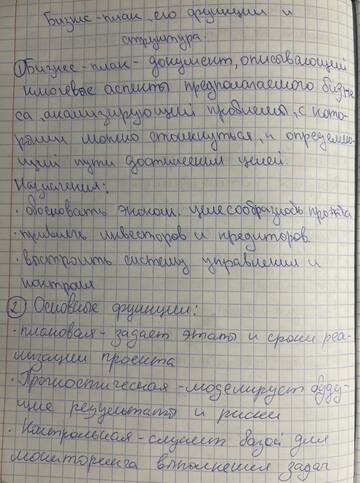 Бизнес-план, его функции и
структура
① Бизнес-план - документ, описывающий
ключевые аспекты предполагаемого бизне
са, анализирующий проблемы, с кото
рыми можно столкнуться, и определяю
щий пути достижения целей.
Назначения:
• обосновать эконом. целесообразность проекта
• привлечь инвесторов и кредиторов
• выстроить систему управления и
контроля
② Основные функции:
• плановая - задает этапы и сроки реа
лизации проекта
• Прогностическая - моделирует буду
щие результаты и риски
• Контрольная - служит базой для
мониторинга выполнения задач